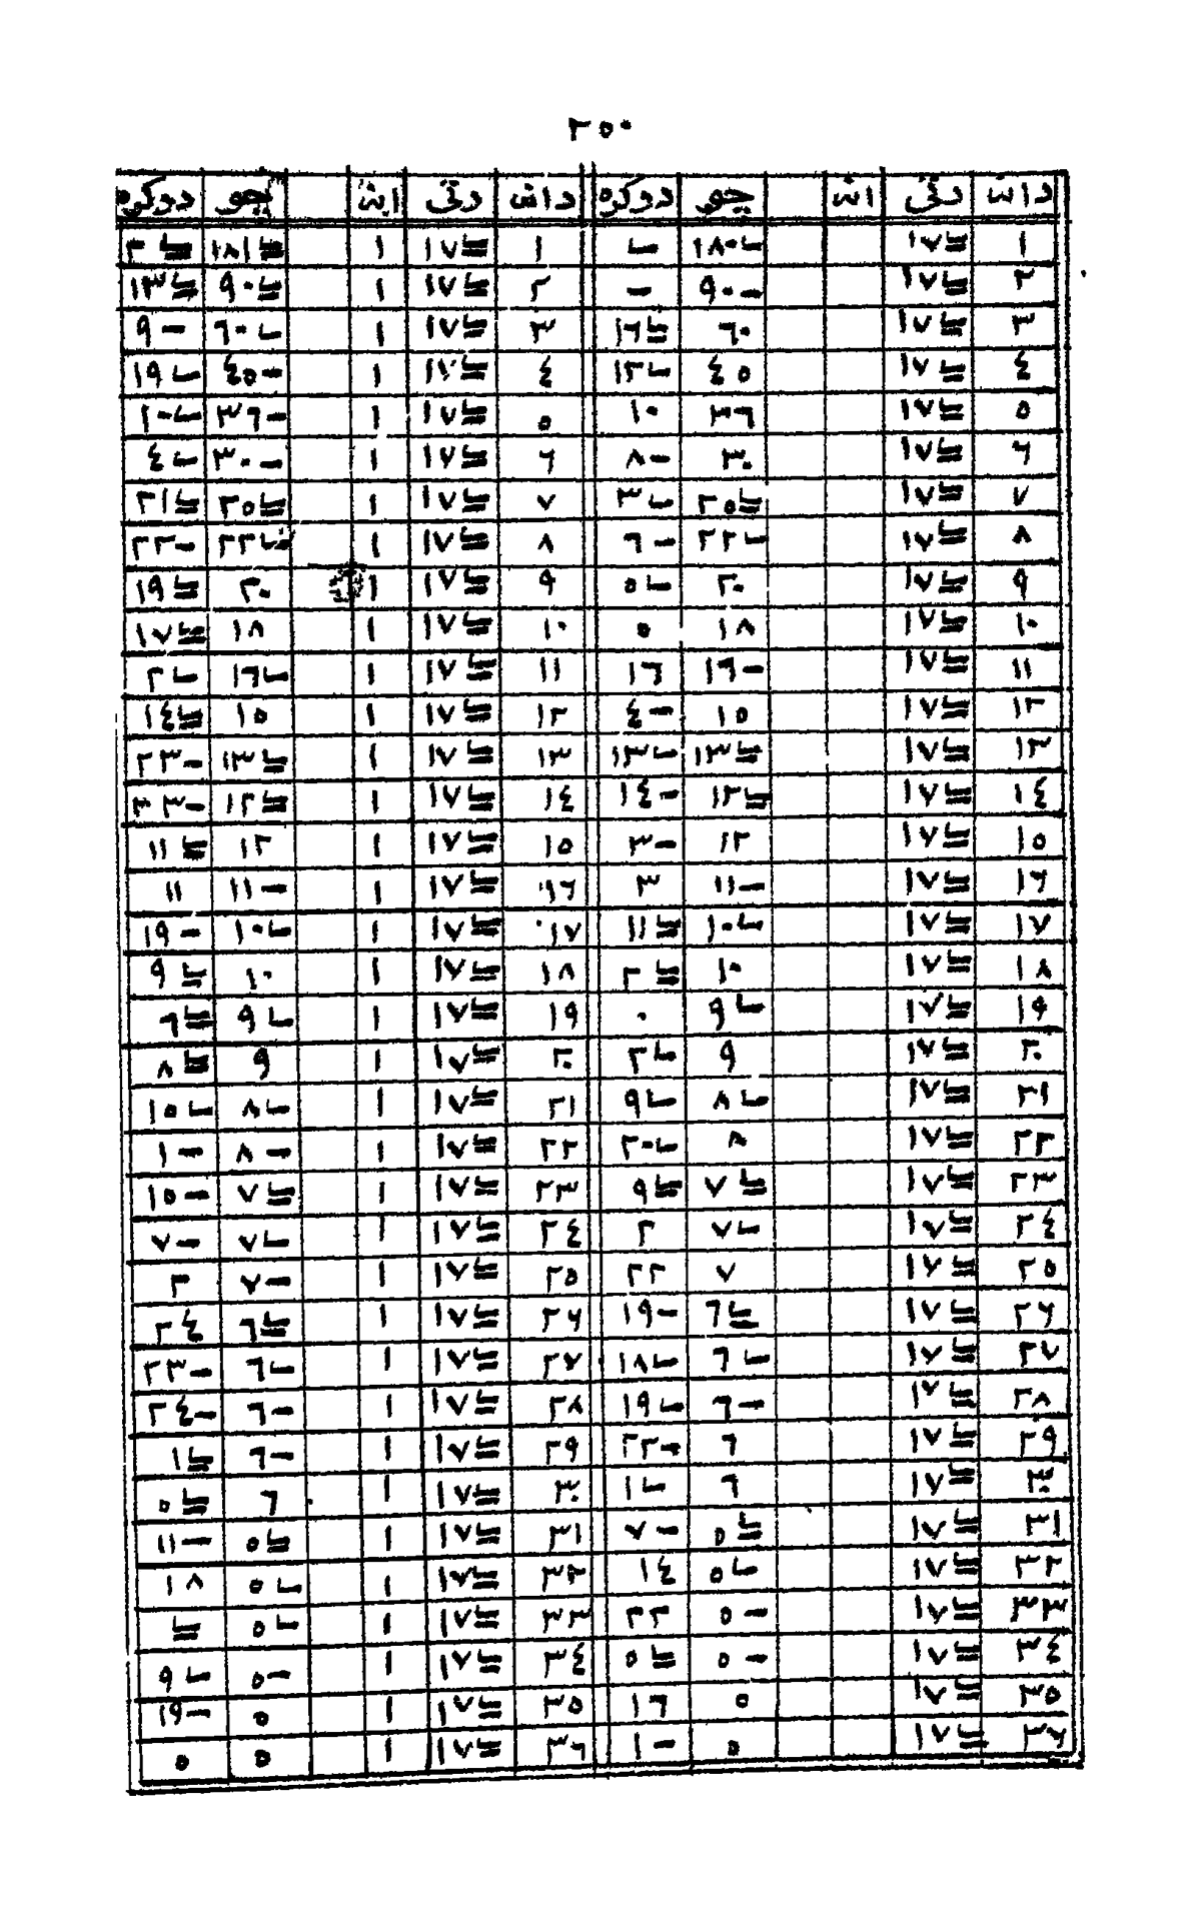 ٢٥٠
دانـ رتي انـ چو دوكره دانـ رتي انـ چو دوكره
١ ≡١٧ ـا١٨٠ ـا ١ ≡١٧ ١ ≡١٨١ ≡٣
٢ ≡١٧ -٩٠ - ٢ ≡١٧ ١ ≡٩٠ ≡١٣
٣ ≡١٧ ٦٠ ≡١٦ ٣ ≡١٧ ١ ـا٦٠ -٩
٤ ≡١٧ ٤٥ ـا١٢ ٤ ≡١٧ ١ -٤٥ ـا١٩
٥ ≡١٧ ٣٦ ١٠ ٥ ≡١٧ ١ -٣٦ ـا١٠
٦ ≡١٧ ٣٠ -٨ ٦ ≡١٧ ١ -٣٠ ـا٤
٧ ≡١٧ ≡٢٥ ـا٣ ٧ ≡١٧ ١ ≡٢٥ ≡٢١
٨ ≡١٧ ـا٢٢ -٦ ٨ ≡١٧ ١ ـا٢٢ -٢٢
٩ ≡١٧ ٢٠ ـا٥ ٩ ≡١٧ ١ ٢٠ ≡١٩
١٠ ≡١٧ ١٨ ٥ ١٠ ≡١٧ ١ ١٨ ≡١٧
١١ ≡١٧ -١٦ ١٦ ١١ ≡١٧ ١ ـا١٦ ـا٢
١٢ ≡١٧ ١٥ -٤ ١٢ ≡١٧ ١ ١٥ ≡١٤
١٣ ≡١٧ ≡١٣ ـا١٣ ١٣ ≡١٧ ١ ≡١٣ -٢٣
١٤ ≡١٧ ≡١٢ -١٤ ١٤ ≡١٧ ١ ≡١٢ -٢٣
١٥ ≡١٧ ١٢ -٣ ١٥ ≡١٧ ١ ١٢ ≡١١
١٦ ≡١٧ -١١ ٣ ١٦ ≡١٧ ١ -١١ ١١
١٧ ≡١٧ ـا١٠ ≡١١ ١٧ ≡١٧ ١ ـا١٠ -١٩
١٨ ≡١٧ ١٠ ≡٢ ١٨ ≡١٧ ١ ١٠ ≡٩
١٩ ≡١٧ ـا٩ ٠ ١٩ ≡١٧ ١ ـا٩ ≡٦
٢٠ ≡١٧ ٩ ـا٢ ٢٠ ≡١٧ ١ ٩ ≡٨
٢١ ≡١٧ ـا٨ ـا٩ ٢١ ≡١٧ ١ ـا٨ ـا١٥
٢٢ ≡١٧ ٨ ـا٢٠ ٢٢ ≡١٧ ١ -٨ -١
٢٣ ≡١٧ ≡٧ ≡٩ ٢٣ ≡١٧ ١ ≡٧ -١٥
٢٤ ≡١٧ ـا٧ ٢ ٢٤ ≡١٧ ١ ـا٧ -٧
٢٥ ≡١٧ ٧ ٢٢ ٢٥ ≡١٧ ١ -٧ ٣
٢٦ ≡١٧ ≡٦ -١٩ ٢٦ ≡١٧ ١ ≡٦ ٢٤
٢٧ ≡١٧ ـا٦ ـا١٨ ٢٧ ≡١٧ ١ ـا٦ -٢٣
٢٨ ≡١٧ -٦ ـا١٩ ٢٨ ≡١٧ ١ -٦ -٢٤
٢٩ ≡١٧ ٦ -٢٢ ٢٩ ≡١٧ ١ -٦ ≡١
٣٠ ≡١٧ ٦ ـا١ ٣٠ ≡١٧ ١ ٦ ≡٥
٣١ ≡١٧ ≡٥ -٧ ٣١ ≡١٧ ١ ≡٥ -١١
٣٢ ≡١٧ ـا٥ ١٤ ٣٢ ≡١٧ ١ ـا٥ ١٨
٣٣ ≡١٧ -٥ ٢٢ ٣٣ ≡١٧ ١ ـا٥ ≡
٣٤ ≡١٧ -٥ ≡٥ ٣٤ ≡١٧ ١ -٥ ـا٩
٣٥ ≡١٧ ٥ ١٦ ٣٥ ≡١٧ ١ ٥ -١٩
٣٦ ≡١٧ ٥ -١ ٣٦ ≡١٧ ١ ٥ ٥